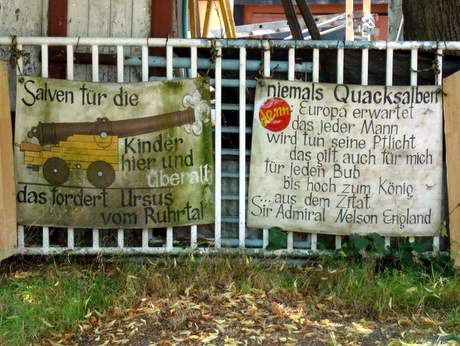 Salven für die
Kinder
hier und
überall
das fordert Ursus
vom Ruhrtal
niemals Quacksalber
denn:
Europa erwartet
das jeder Mann
wird tun seine Pflicht
das gilt auch für mich
für jeden Bub
bis hoch zum König
...aus dem Zitat
Sir Admiral Nelson England